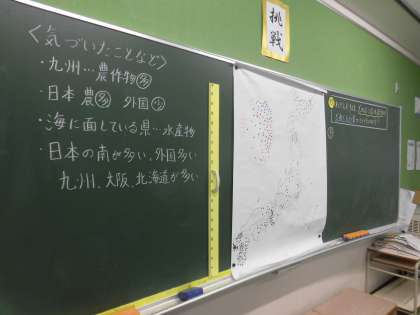 <気づいたことなど>
・九州…農作物多
・日本 農多 外国少
・海に面している県…水産物
・日本の南が多い、外国多い
九州、大阪、北海道が多い
挑戦